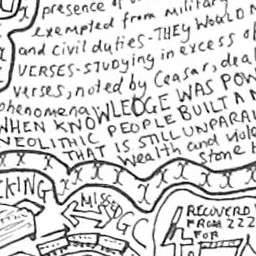 presence of
exempted from military
and civil duties - THEY WOULD
VERSES - STUDYING in excess of
verses, noted by Ceasar, deal
phenomena,
WHEN KNOWLEDGE WAS POW
NEOLITHIC PEOPLE BUILT A
THAT IS STILL UNPARAL
wealth and viol
stone
CKING
MISSED
GC
RECOVERD
FROM 222
FOR